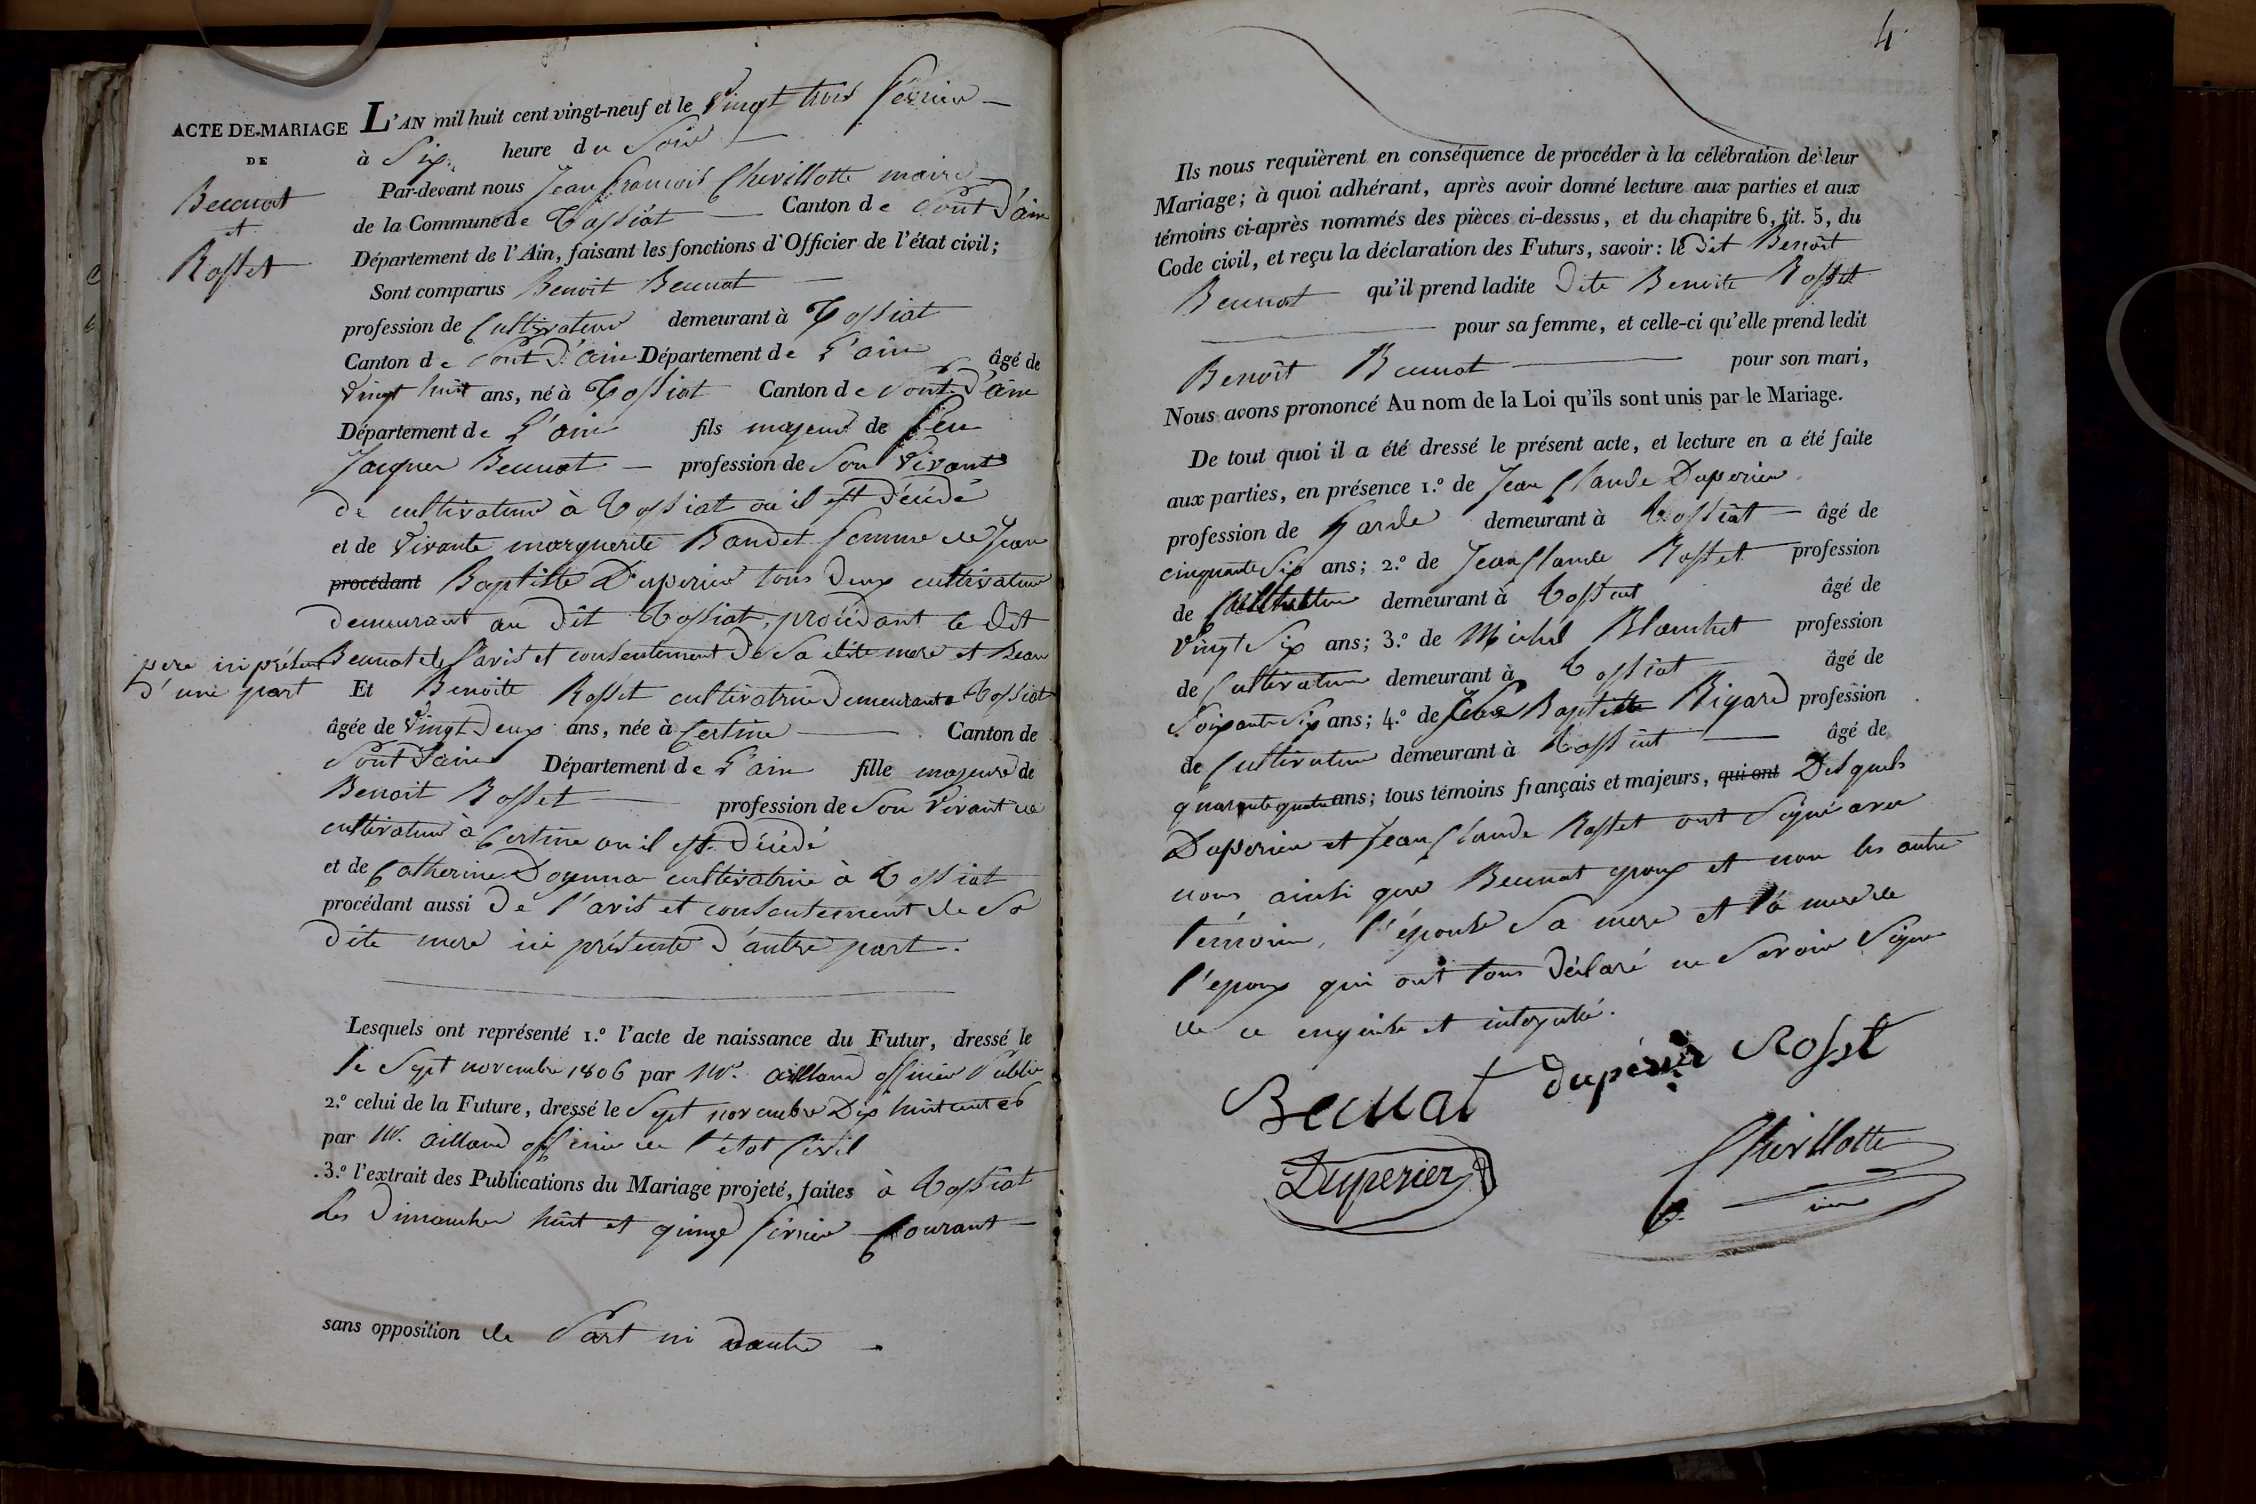 ACTE DE MARIAGE
DE
Beccnat
et
Rosset
L'AN mil huit cent vingt-neuf et le vingt trois février
à Six heure du Soir
Par-devant nous Jean françois Chevillotte maire
de la Commune de Tossiat Canton de Pont d'ain
Département de l'Ain, faisant les fonctions d'Officier de l'état civil;
Sont comparus Benoit
profession de Cultivateur demeurant à Tossiat
Canton de Pont d'ain Département de L'ain âgé de
vingt huit ans, né à Tossiat Canton de Pont d'ain
Département de L'ain fils majeur de feu
Jacques profession de Son vivant
de cultivateur à Tossiat où il est décédé
et de vivante marguerite Baudet femme de Jean
procédant Baptiste Duperier tous deux cultivateur
demeurant au dit Tossiat, procédant le dit
de l'avis et consentement de Sa dite mere et Beau
pere ici présent
d'une part
Et Benoite Rosset cultivatrice demeurant a Tossiat
âgée de vingt deux ans, née à Certine Canton de
Pont d'ain Département de L'ain fille majeure de
Benoit Rosset profession de Son vivant de
cultivateur à Certine où il est décédé
et de Catherine cultivatrice à Tossiat
procédant aussi de l'avis et consentement de Sa
dite mere ici présente d'autre part.
Lesquels ont représenté 1.º l'acte de naissance du Futur, dressé le
le Sept novembre 1806 par Mr. Aillaud officier Public
2.º celui de la Future, dressé le Sept novembre Dix huit cent 6
par Mr. Aillaud officier de l'état Civil
3.º l'extrait des Publications du Mariage projeté, faites à Tossiat
les Dimanches huit et quinze février Courant
sans opposition de Part ni dautre
4
Ils nous requièrent en conséquence de procéder à la célébration de leur
Mariage; à quoi adhérant, après avoir donné lecture aux parties et aux
témoins ci-après nommés des pièces ci-dessus, et du chapitre 6, tit. 5, du
Code civil, et reçu la déclaration des Futurs, savoir: le dit Benoît
qu'il prend ladite dite Benoite Rosset
pour sa femme, et celle-ci qu'elle prend ledit
Benoît pour son mari,
Nous avons prononcé Au nom de la Loi qu'ils sont unis par le Mariage.
De tout quoi il a été dressé le présent acte, et lecture en a été faite
aux parties, en présence 1.º de Jean Claude Duperier
profession de Garde demeurant à Tossiat âgé de
cinquante Six ans; 2.º de Jean Claude Rosset profession
de Cultivateur demeurant à Tossiat âgé de
vingt Six ans; 3.º de Michel Blanchet profession
de Cultivateur demeurant à Tossiat âgé de
Soixante Six ans; 4.º de Jean Baptiste Rigard profession
de Cultivateur demeurant à Tossiat âgé de
quarante quatre ans; tous témoins français et majeurs, qui ont Desquels
Duperier et Jean Claude Rosset ont Signé avec
nous ainsi que époux et non les autre
temoins, l'épouse Sa mere et la mere de
l'époux qui ont tous déclaré ne Savoir Signer
de ce enquis et interpellé.
dupérier Rosset
Duperier
Chevillotte